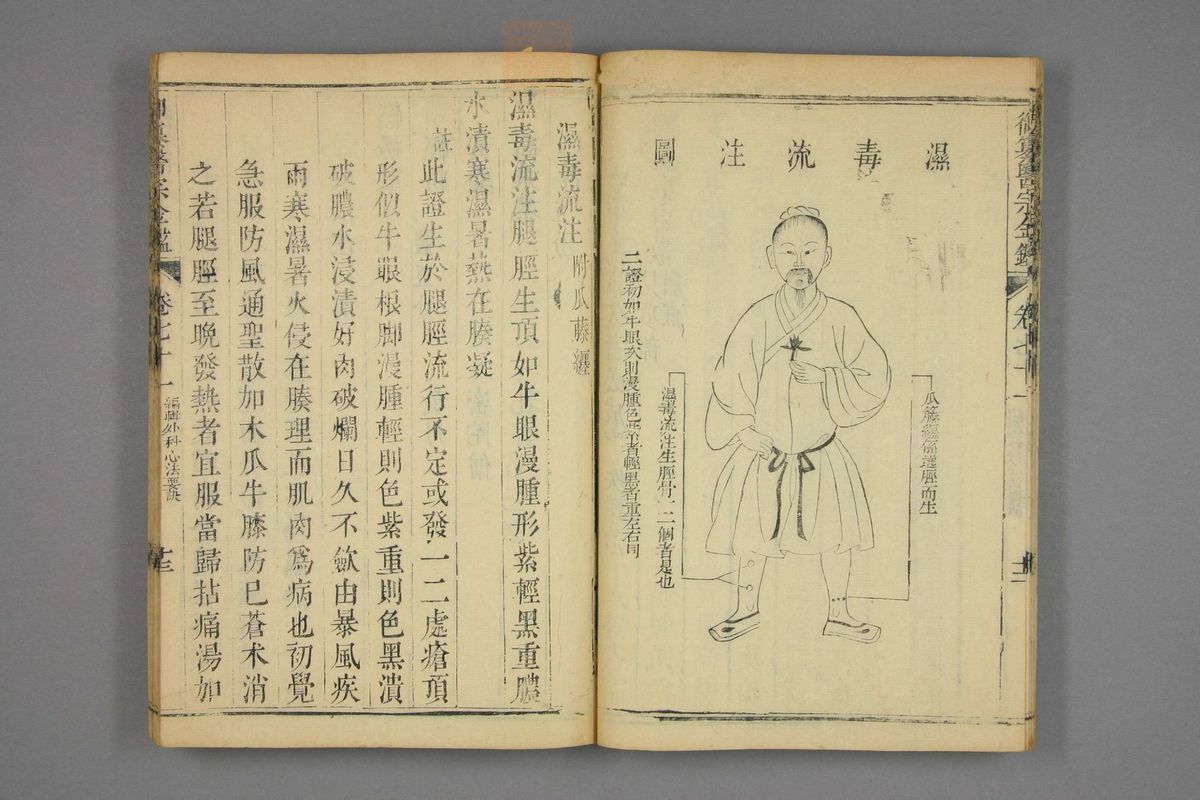 御纂醫宗金鑑
卷七十一
十二
濕毒流注圖
瓜籐纏係遶脛而生
濕毒流注生脛骨一二個者是也
二證初如牛眼次則漫腫色紫者輕黑者重左右同
濕毒流注 附瓜藤纏
濕毒流注腿脛生頂如牛眼漫腫形紫輕黑重膿
水漬寒濕暑熱在腠凝
註此證生於腿脛流行不定或發一二處瘡頂
形似牛眼根脚漫腫輕則色紫重則色黑潰
破膿水浸漬好肉破爛日久不斂由暴風疾
雨寒濕暑火侵在腠理而肌肉為病也初覺
急服防風通聖散加木瓜牛膝防已蒼朮消
之若腿脛至晚發熱者宜服當歸拈痛湯如
御纂醫宗金鑑
卷七十一
編輯外科心法要訣
十三